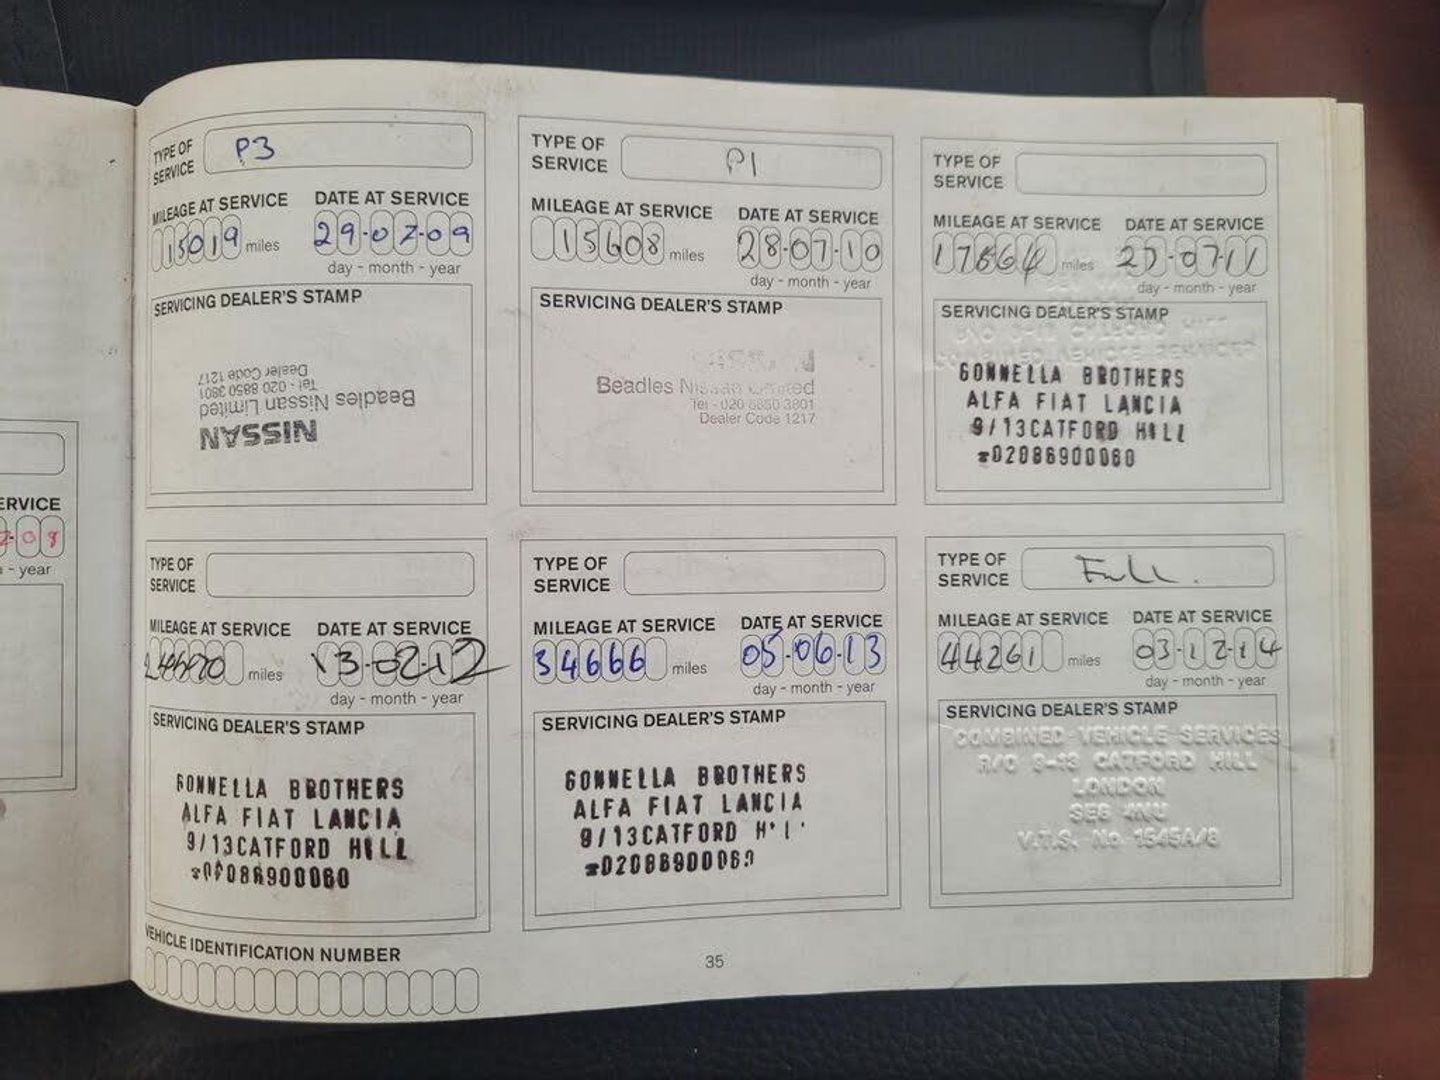 ERVICE
- year
TYPE OF
SERVICE
P3
MILEAGE AT SERVICE
DATE AT SERVICE
15019 miles
29-07-09
day - month - year
SERVICING DEALER'S STAMP
NISSAN
Beadles Nissan Limited
Tel - 020 8850 3801
Dealer Code 1217
TYPE OF
SERVICE
P1
MILEAGE AT SERVICE
DATE AT SERVICE
15608 miles
28-07-10
day - month - year
SERVICING DEALER'S STAMP
Beadles Nissan Limited
Tel - 020 8850 3801
Dealer Code 1217
TYPE OF
SERVICE
MILEAGE AT SERVICE
DATE AT SERVICE
17664 miles
27-07-11
day - month - year
SERVICING DEALER'S STAMP
GONNELLA BROTHERS
ALFA FIAT LANCIA
9/13CATFORD HILL
☎02086900060
TYPE OF
SERVICE
MILEAGE AT SERVICE
DATE AT SERVICE
miles
13-02-12
day - month - year
SERVICING DEALER'S STAMP
GONNELLA BROTHERS
ALFA FIAT LANCIA
9/13CATFORD HILL
☎02086900060
TYPE OF
SERVICE
MILEAGE AT SERVICE
DATE AT SERVICE
34666 miles
05-06-13
day - month - year
SERVICING DEALER'S STAMP
GONNELLA BROTHERS
ALFA FIAT LANCIA
9/13CATFORD HILL
☎02086900060
TYPE OF
SERVICE
Full.
MILEAGE AT SERVICE
DATE AT SERVICE
44261 miles
03-12-14
day - month - year
SERVICING DEALER'S STAMP
COMBINED VEHICLE SERVICES
R/O 9-13 CATFORD HILL
LONDON
SE6 4NU
V.T.S. No. 1545A/8
VEHICLE IDENTIFICATION NUMBER
35